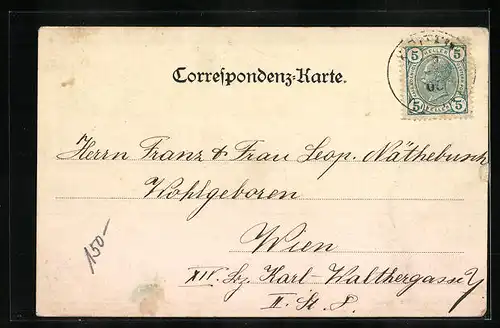 Correspondenz-Karte.
5 5
HELLER
5 5
Herrn Franz & Frau Leop. Näthebusch
Wohlgeboren
Wien
XIV. Bz. Karl-Walthergasse 7
II. St. 8.
150-